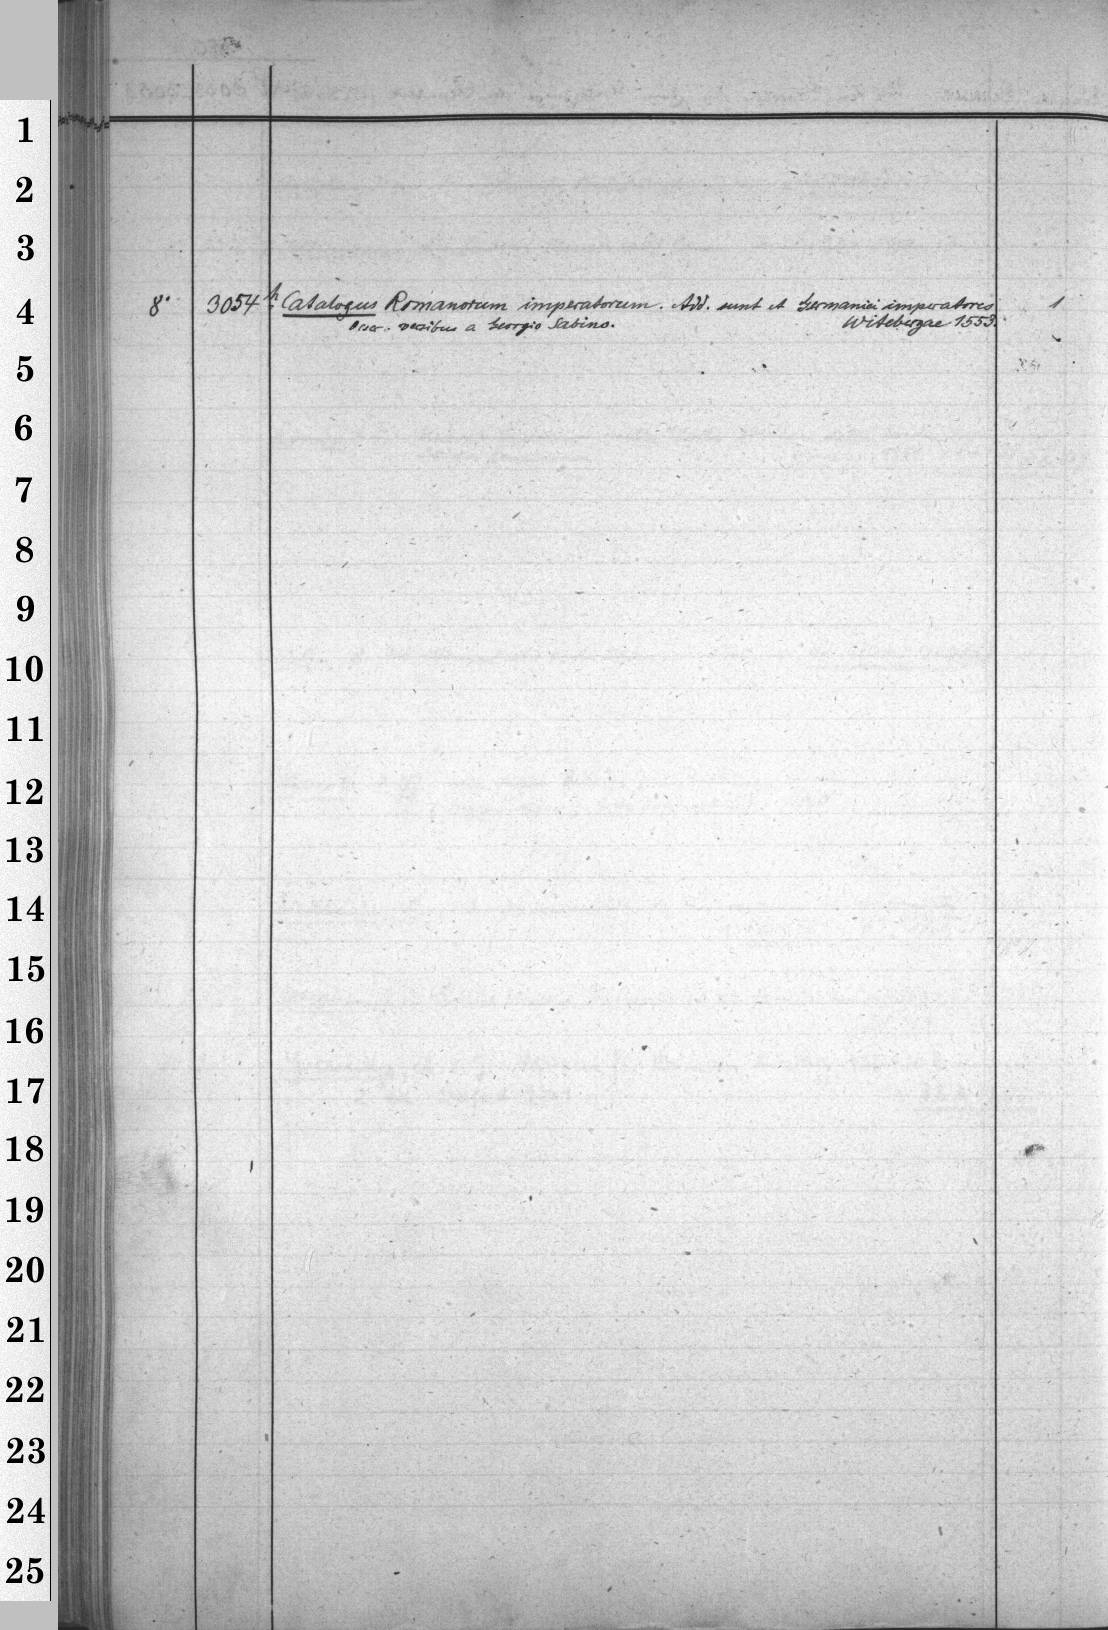 1
2
3
8° 3054 h Catalogus Romanorum imperatorum. Add. sunt et Germanici imperatores 1
versibus a Georgio Sabino. Witebergae 1553.
4
5
6
7
8
9
10
11
12
13
14
15
16
17
18
19
20
21
22
23
24
25